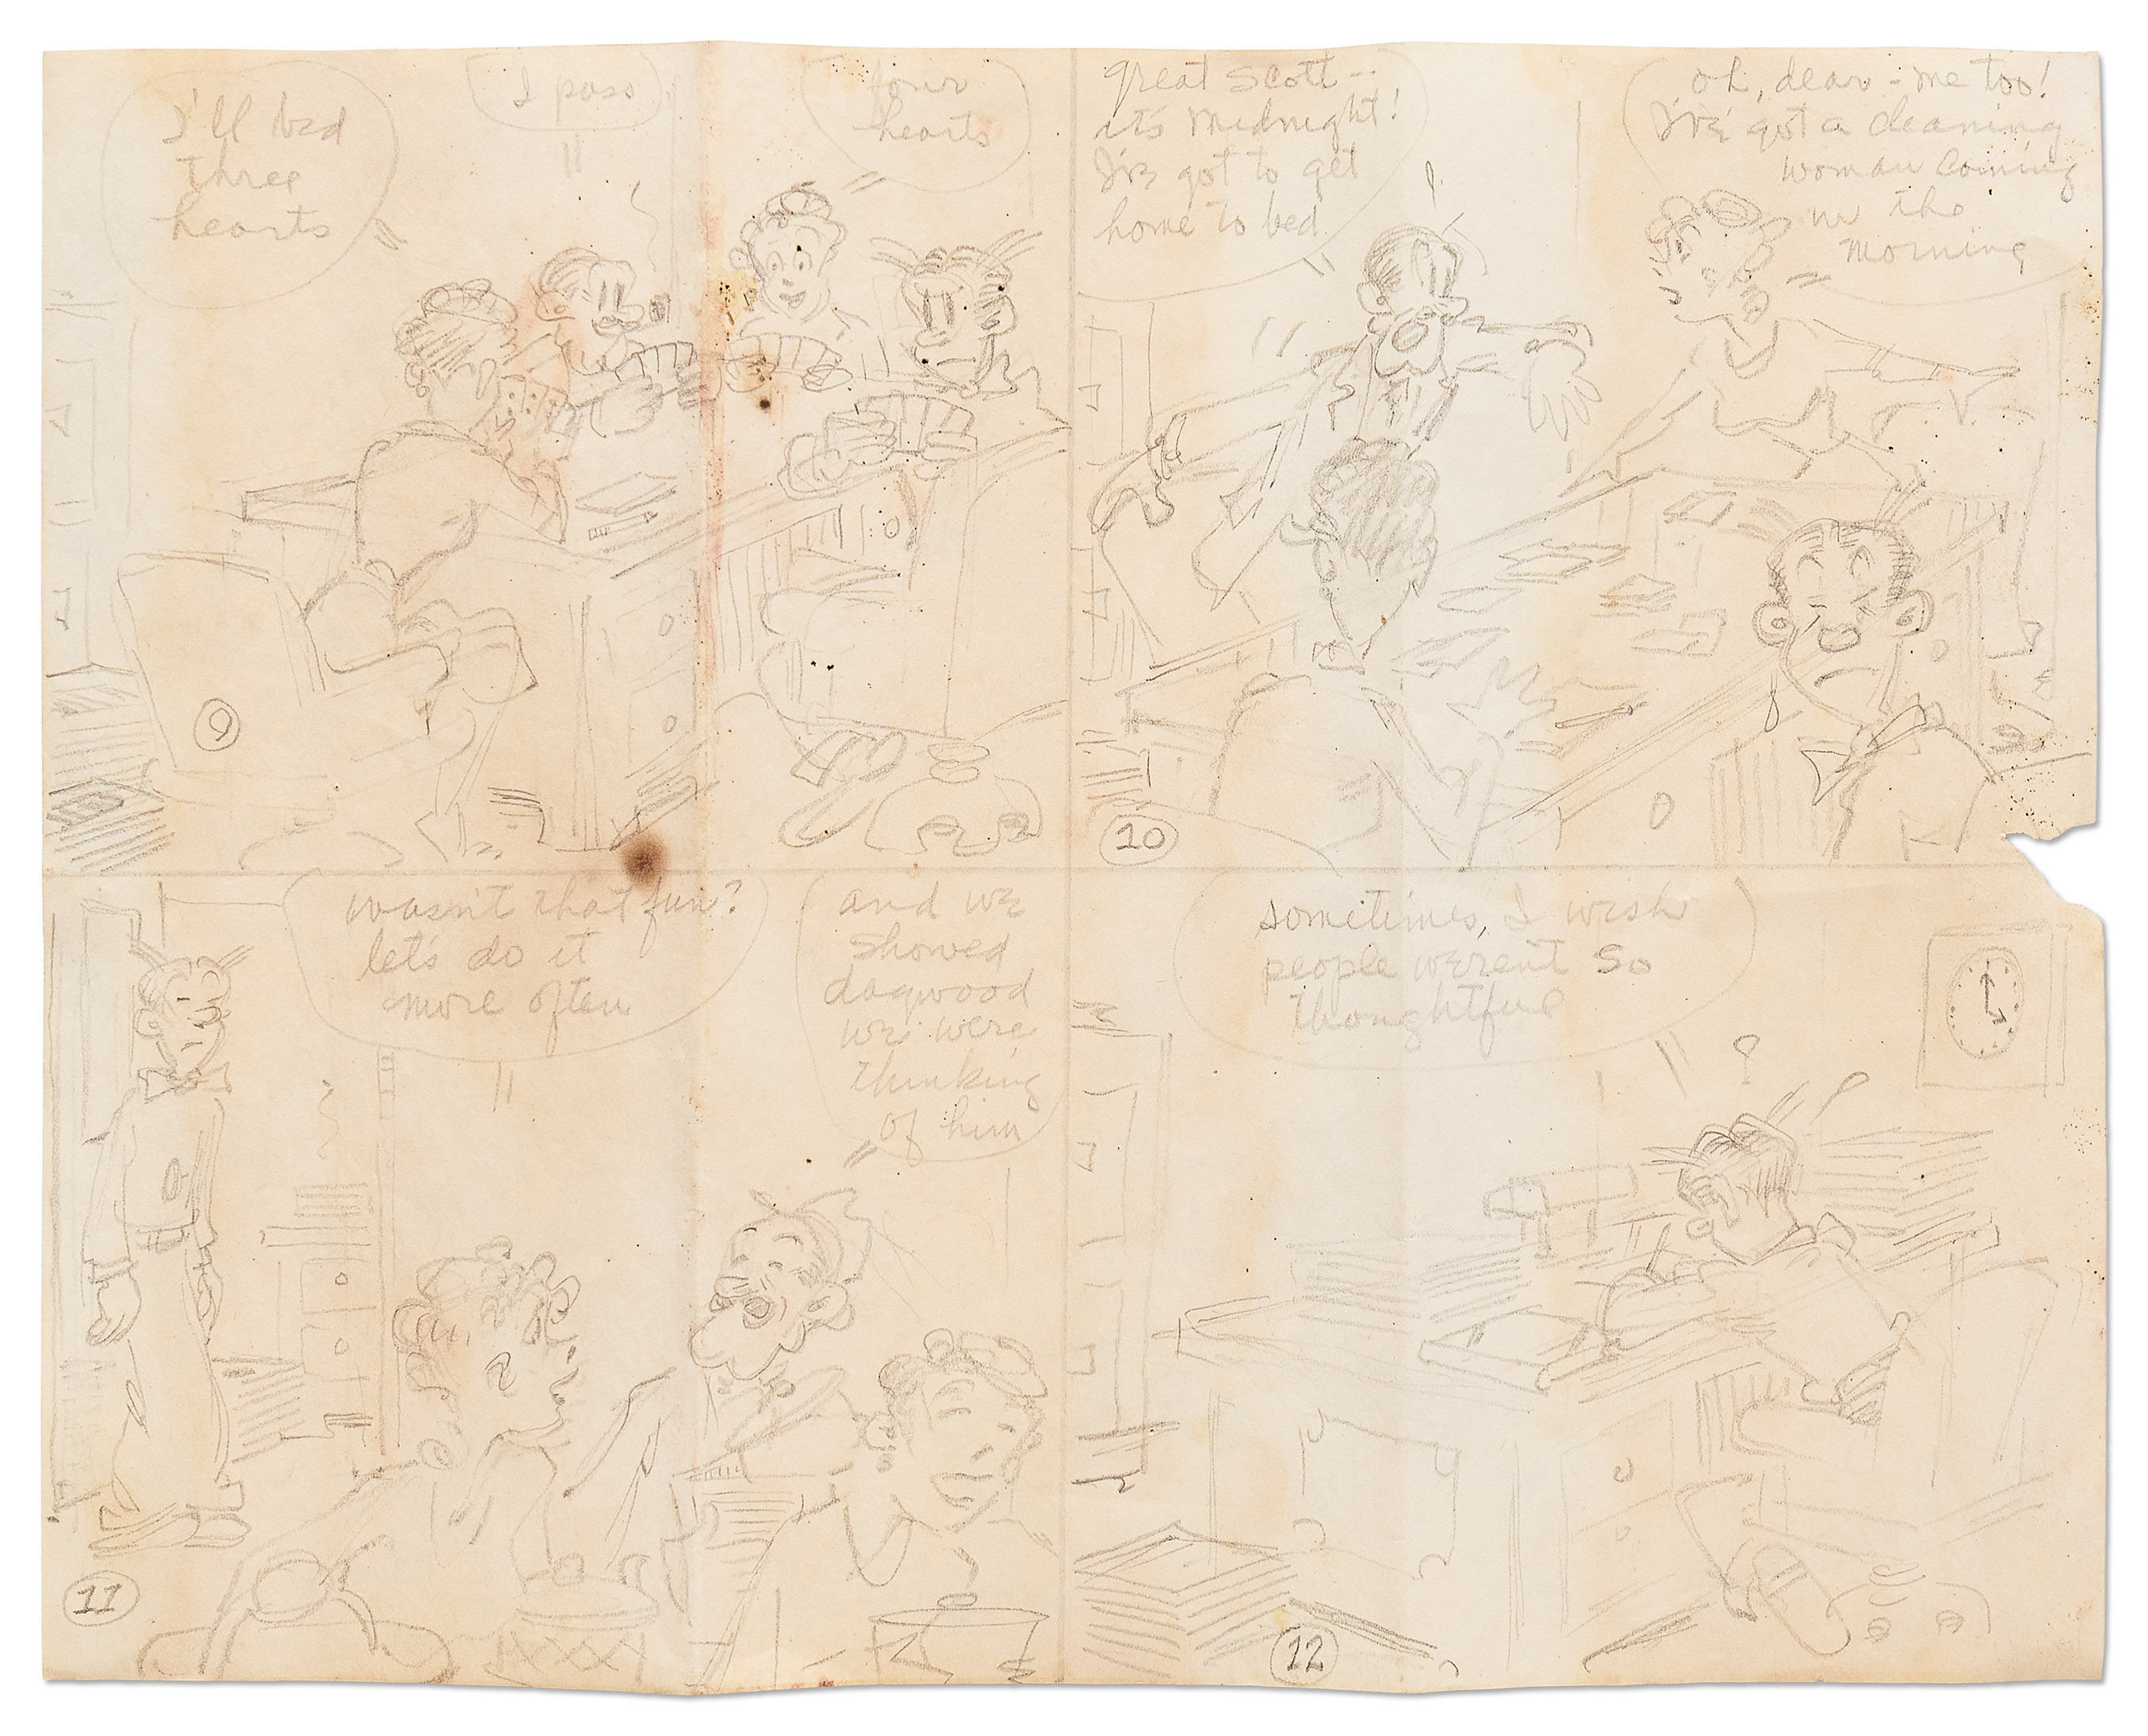 I'll bid
three
hearts
I pass
four
hearts
9
great scott --
it's midnight!
I've got to get
home to bed
oh, dear - me too!
I've got a cleaning
woman coming
in the
morning
10
wasn't that fun?
let's do it
more often
and we
showed
dagwood
we were
thinking
of him
11
sometimes, I wish
people werent so
thoughtful
12